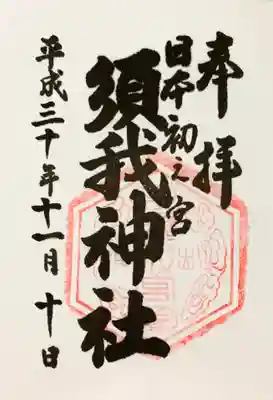 奉拝
日本初之宮
須我神社
平成三十年十一月十日